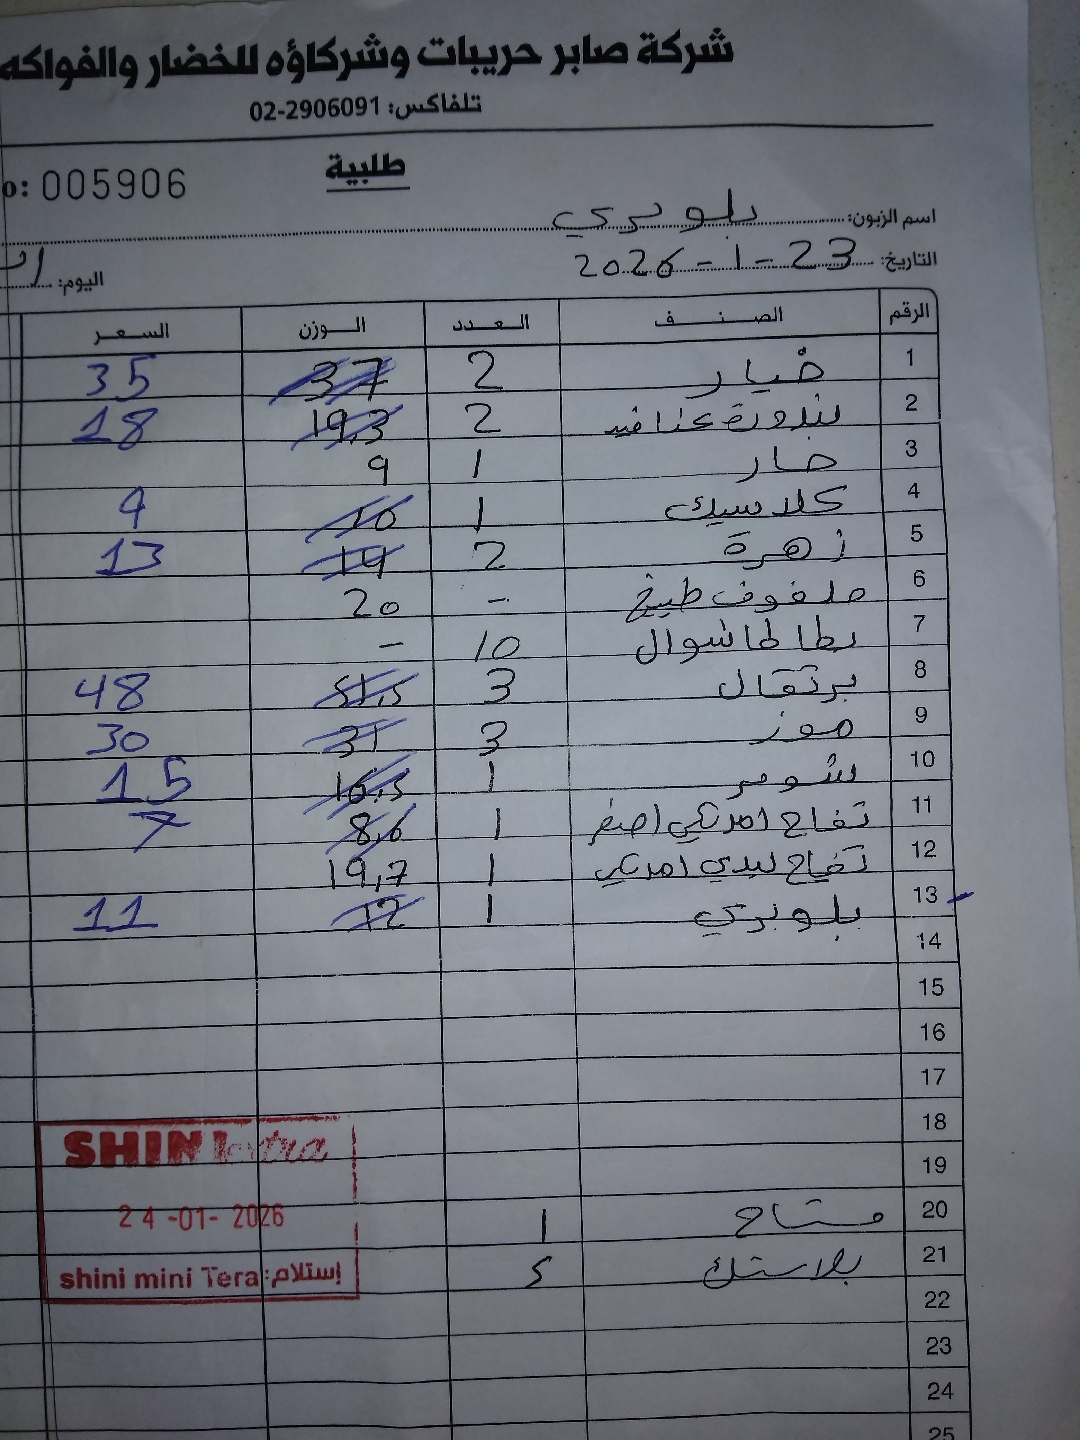 شركة صابر حريبات وشركاؤه للخضار والفواكه
تلفاكس: 02-2906091
طلبية
o: 005906
اسم الزبون: بلوبري
التاريخ: 23-1-2026
اليوم:
الرقم الصنف العدد الوزن السعر
1 خيار 2 37 35
2 بندورة عناقيد 2 19,3 18
3 حار 1 9
4 كلاسيك 1 10 9
5 زهرة 2 14 13
6 ملفوف طبيخ - 20
7 بطاطا شوال 10 -
8 برتقال 3 51,5 48
9 موز 3 31 30
10 شومر 1 16,5 15
11 تفاح امريكي اصفر 1 8,6 7
12 تفاح ليدي امريكي 1 19,7
13 بلوبري 1 12 11
14
15
16
17
18
19
20 مشتاح 1
21 بلاستك 5
22
23
24
25
SHINI extra
24-01-2026
shini mini Tera إستلام: